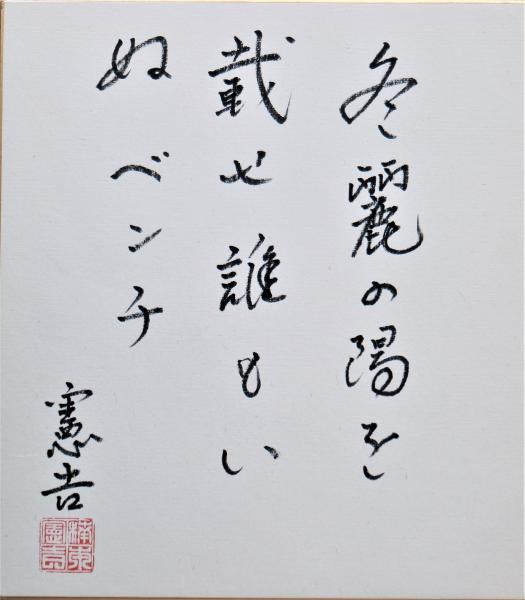 冬麗の陽を
載せ誰もい
ぬベンチ
憲吉
楠本
憲吉